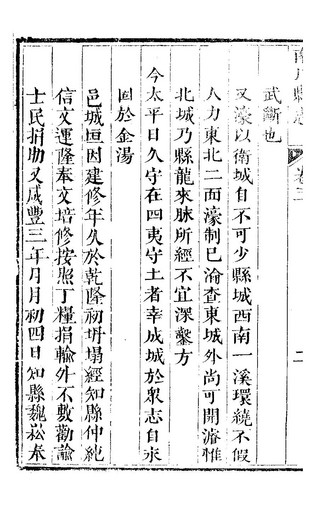 南川縣志 卷二 二
武斷也
又濠以衛城自不可少縣城西南一溪環繞不假
人力東北二面濠制已淪查東城外尚可開濬惟
北城乃縣龍來脉所經不宜深鑿方
今太平日久守在四夷守土者幸成城於衆志自永
固於金湯
邑城垣因建修年久於乾隆初坍塌經知縣仲純
信文運隆奉文培修按照丁糧捐輸外不敷勸諭
士民捐助又咸豐三年月初四日知縣魏崧奉